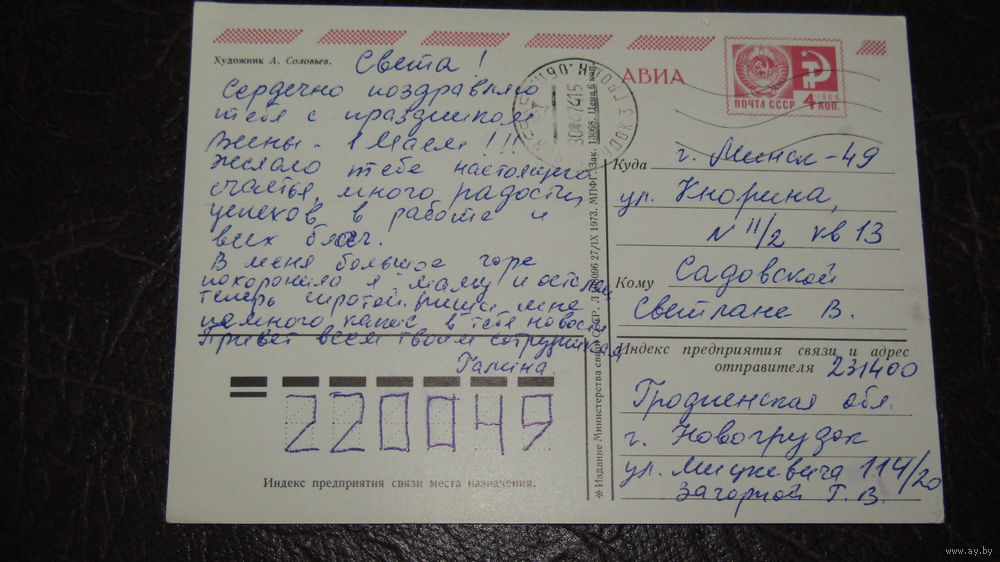 Художник А. Соловьев.
Света!
Сердечно поздравляю
тебя с праздником
Весны - 1 Маем!!!
Желаю тебе настоящего
счастья, много радости,
успехов в работе и
всех благ.
В меня большое горе
похоронила я маму и осталась
теперь сиротой. Пиши мне
немного какие в тебя новости
Привет всем твоим сотрудникам
Галина.
220049
Индекс предприятия связи места назначения.
✳ Издание Министерства связи СССР. 27/IX 1973. МПФГ. Зак. 13068. Цена 6 коп.
АВИА
ПОЧТА СССР
1966
4 КОП.
Куда г. Минск-49
ул. Кнорина,
N 11/2 кв 13
Кому Садовской
Светлане В.
Индекс предприятия связи и адрес
отправителя 231400
Гродненская обл.
г. Новогрудок
ул. Мицкевича 114/20
Загорной Г. В.
www.ay.by